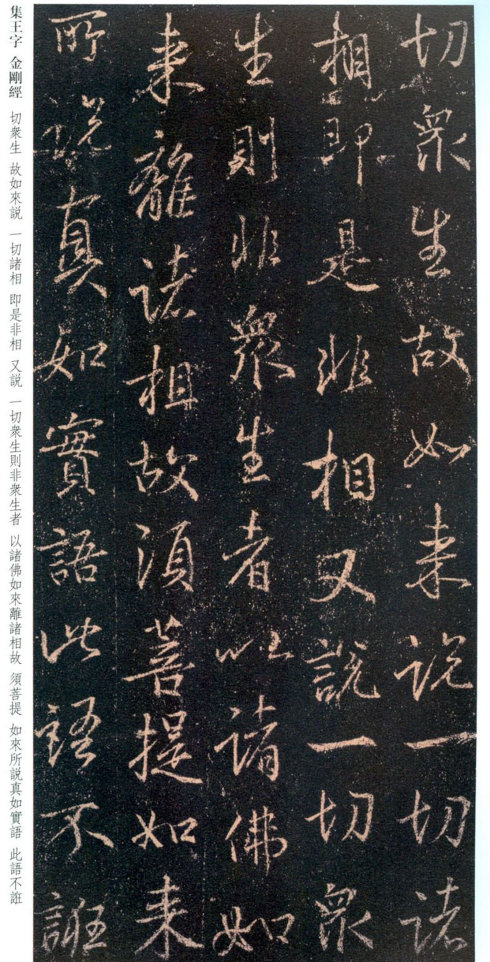 切衆生故如来说一切诸
相即是非相又説一切衆
生則非衆生者以诸佛如
来離诸相故須菩提如来
所说真如實語此語不誑
集王字 金剛經 切衆生 故如來説 一切諸相 即是非相 又説 一切衆生則非衆生者 以諸佛如來離諸相故 須菩提 如來所説真如實語 此語不誑